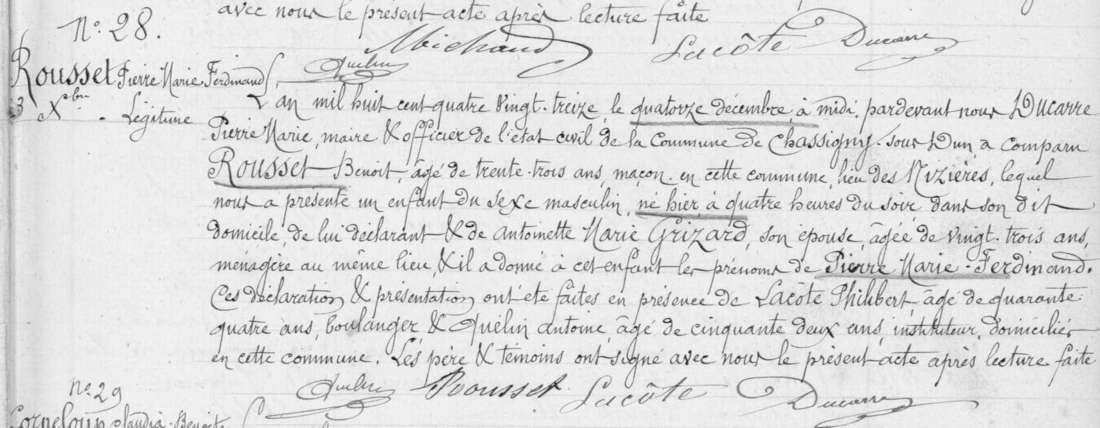 avec nous le présent acte après lecture faite
N° 28.
Michaud Lacôte Ducarre
Quelin
Rousset Pierre Marie Ferdinand
3 Xbre. Légitime
L'an mil huit cent quatre vingt-treize, le quatorze décembre, à midi, pardevant nous Ducarre
Pierre Marie, maire & officier de l'état civil de la Commune de Chassigny-sous-Dun a comparu
Rousset Benoit, âgé de trente-trois ans, maçon en cette commune, lieu des Nizières, lequel
nous a présenté un enfant du sexe masculin, né hier, à quatre heures du soir dans son dit
domicile, de lui déclarant & de Antoinette Marie Grizard, son épouse, âgée de vingt-trois ans,
ménagère au même lieu, & il a donné à cet enfant les prénoms de Pierre Marie-Ferdinand.
Ces déclaration & présentation ont été faites en présence de Lacôte Philibert âgé de quarante
quatre ans, boulanger & Quélin Antoine, âgé de cinquante deux ans, instituteur, domiciliés
en cette commune. Les père & témoins ont signé avec nous le présent acte après lecture faite
Quelin Rousset Lacôte Ducarre
N° 29
Corneloup Claudia-Benoite